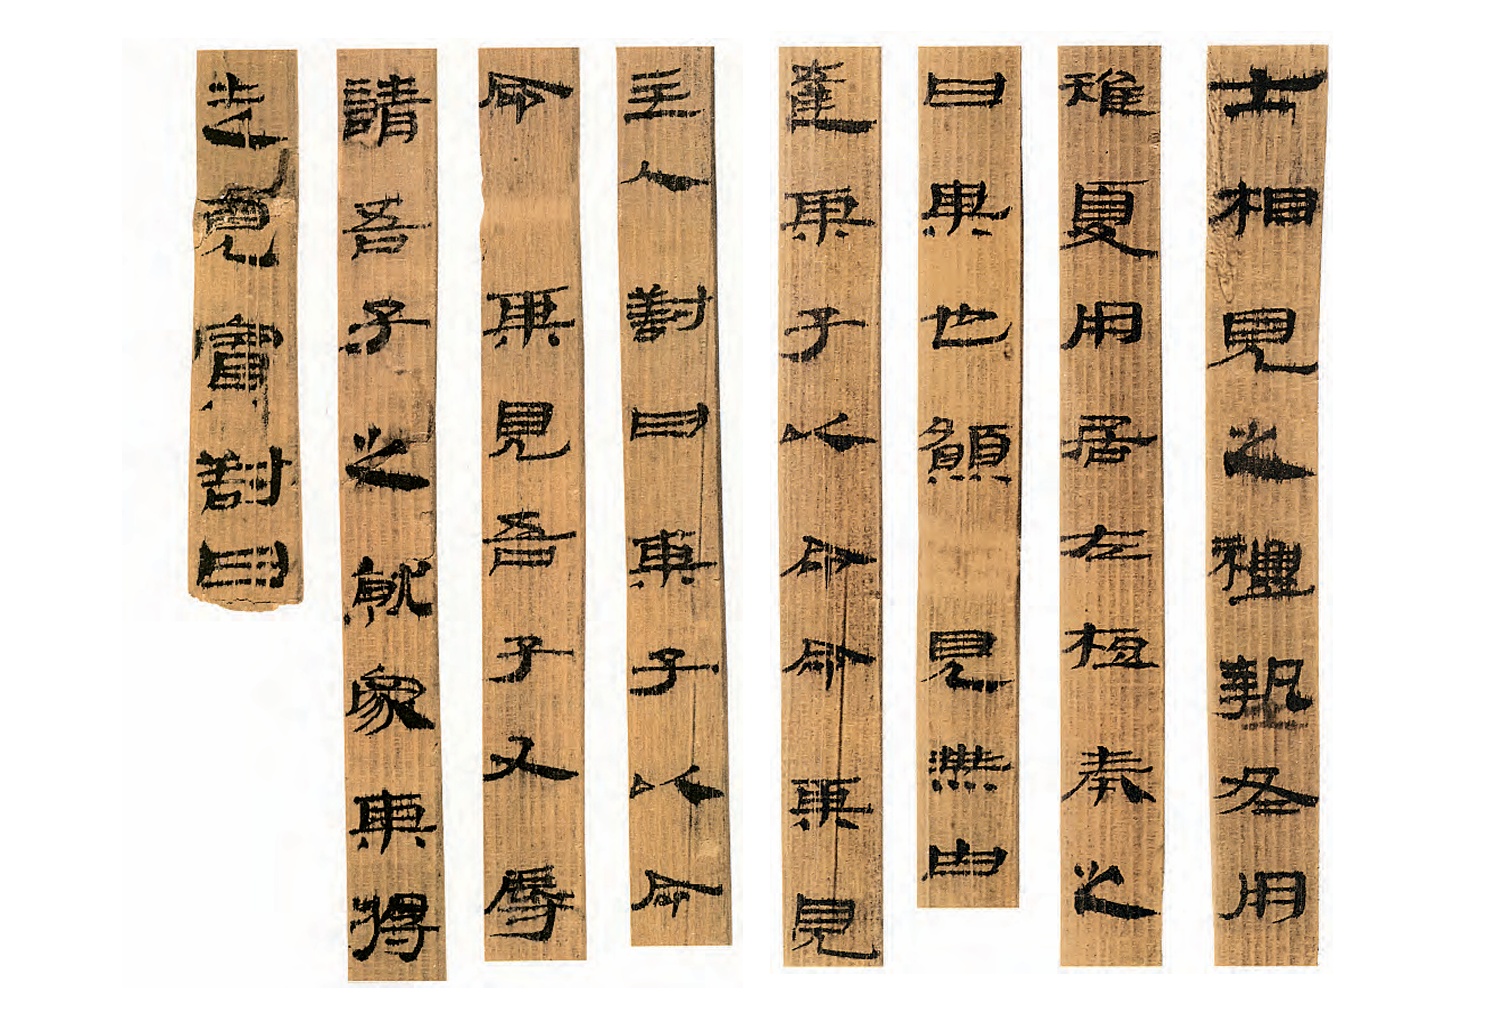 士相見之禮摯冬用
雉夏用居左梪奉之
曰某也願見無由
達某子以命命某見
主人對曰某子以命
命某見吾子又辱
請吾子之就家某將
走見賓對曰